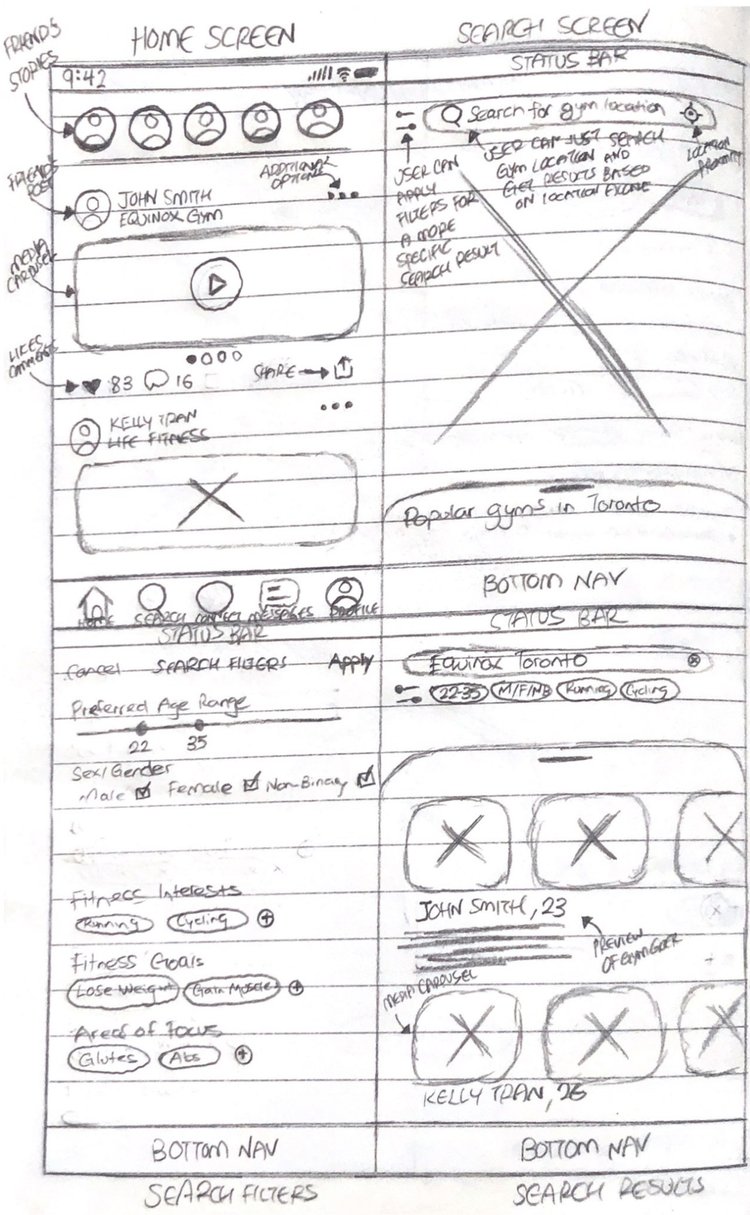 HOME SCREEN
SEARCH SCREEN
FRIENDS
STORIES
9:42
FRIENDS
POST
JOHN SMITH
EQUINOX GYM
ADDITIONAL
OPTIONS
MEDIA
CAROUSEL
LIKES
COMMENTS
83
16
SHARE
KELLY TRAN
LIFE FITNESS
HOME
SEARCH
MESSAGES
PROFILE
STATUS BAR
Search for gym location
USER CAN
APPLY
FILTERS FOR
A MORE
SPECIFIC
SEARCH RESULT
USER CAN JUST SEARCH
GYM LOCATION AND
GET RESULTS BASED
ON LOCATION ALONE
LOCATION
PROXIMITY
Popular gyms in Toronto
BOTTOM NAV
STATUS BAR
Cancel
SEARCH FILTERS
Apply
Preferred Age Range
22
35
Sex/Gender
Male
Female
Non-Binary
Fitness Interests
Running
Cycling
Fitness Goals
Lose Weight
Gain Muscle
Areas of Focus
Glutes
Abs
BOTTOM NAV
SEARCH FILTERS
STATUS BAR
Equinox Toronto
22-35
M/F/NB
Running
Cycling
JOHN SMITH, 23
PREVIEW
OF GYM GOER
MEDIA CAROUSEL
KELLY TRAN, 26
BOTTOM NAV
SEARCH RESULTS